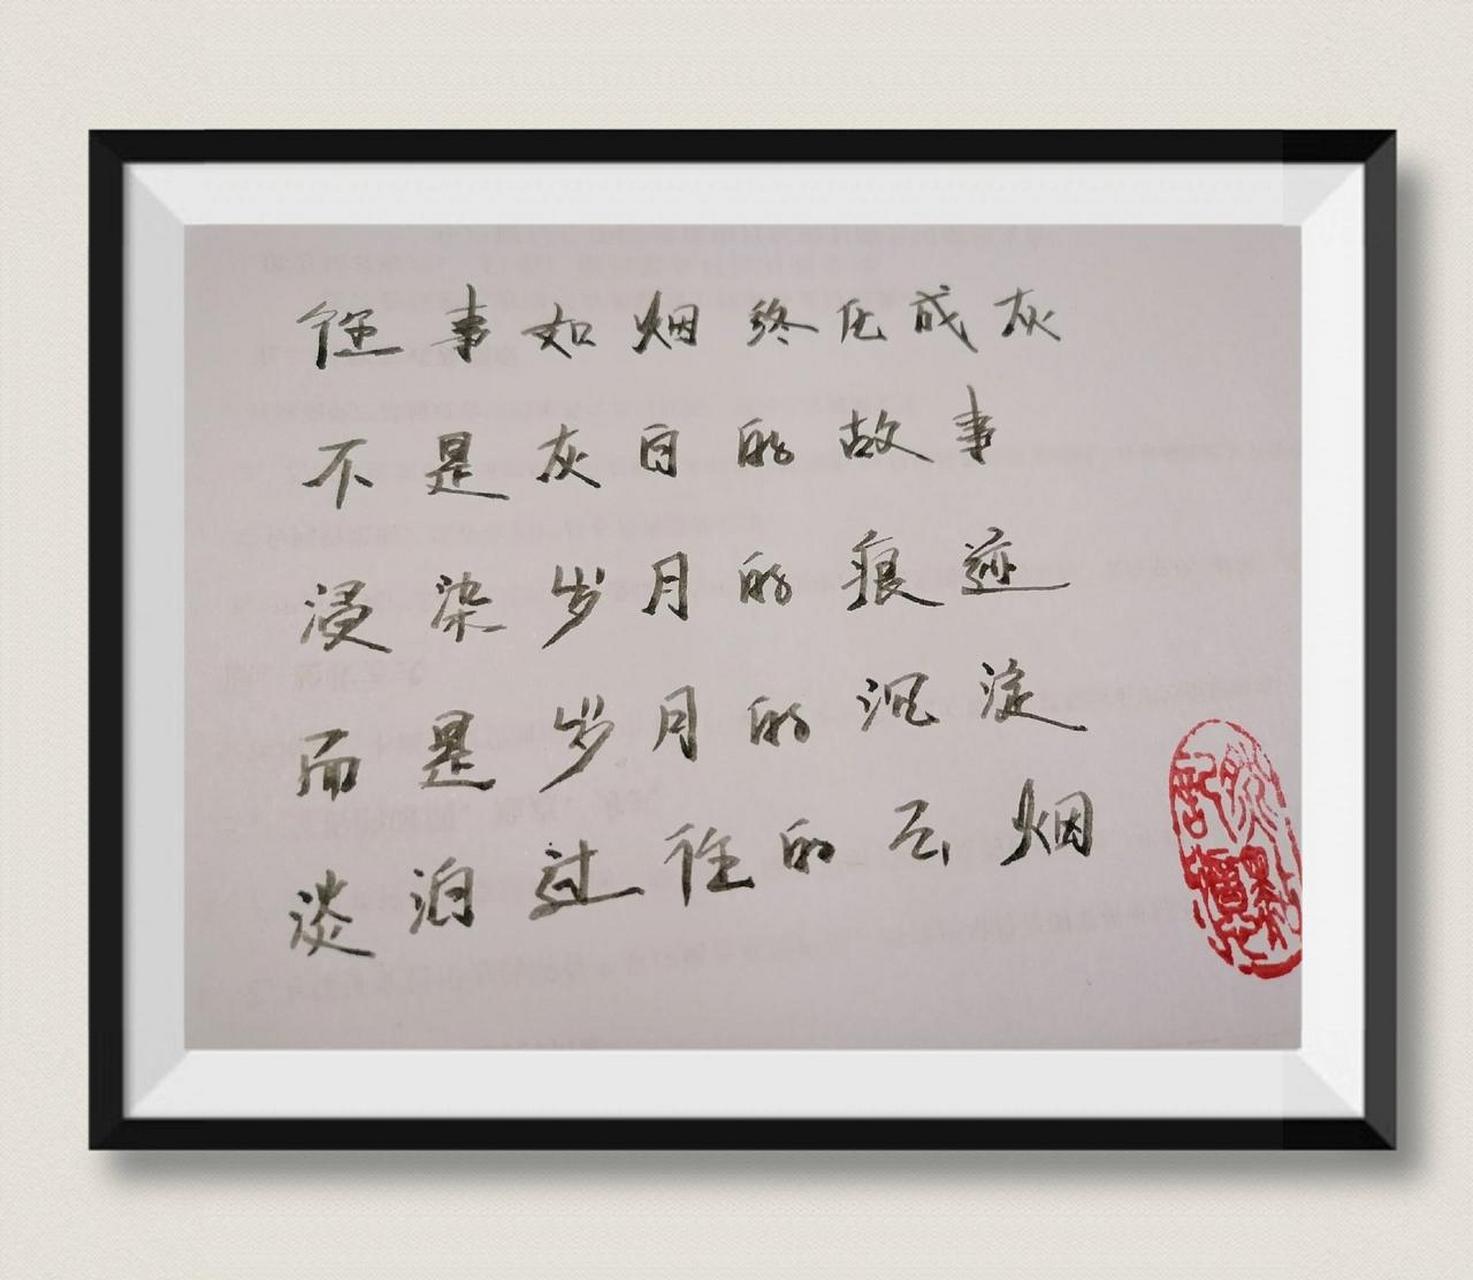 往事如烟终化成灰
不是灰白的故事
浸染岁月的痕迹
而是岁月的沉淀
淡泊过往的云烟